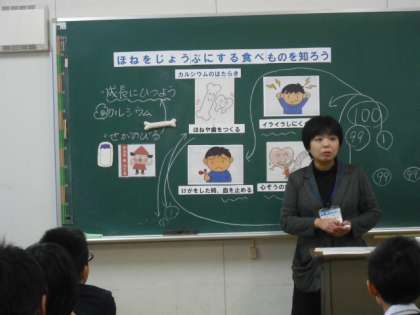 ほねをじょうぶにする食べものを知ろう
カルシウムのはたらき
・成長にひつよう
カルシウム
・せがのびる
ほねや歯をつくる
イライラしにくく
けがをした時、血を止める
心ぞうの
100
99
1
99
99